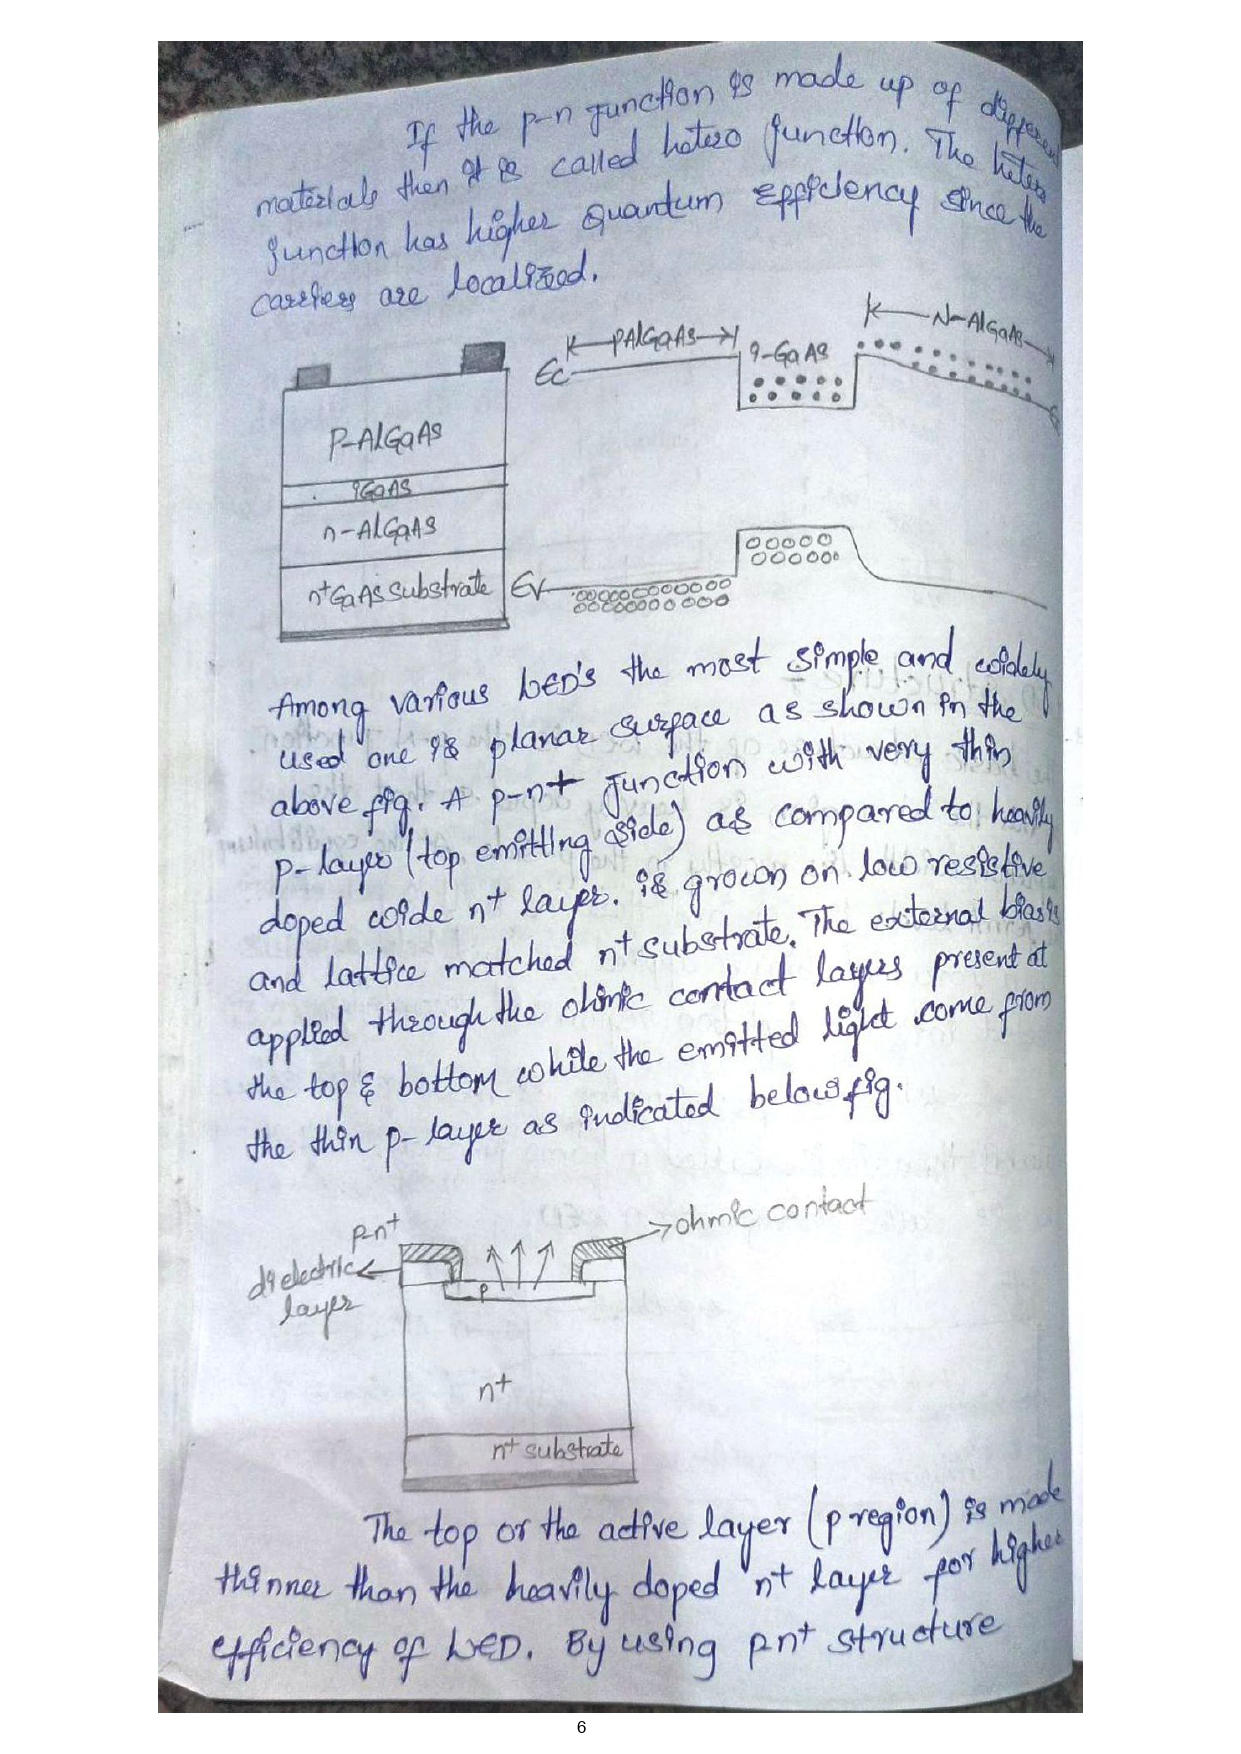 If the p-n junction is made up of different
materials then it is called hetero junction. The hetero
junction has higher Quantum Efficiency since the
carriers are localized.
PAlGaAs
i-GaAs
N-AlGaAs
Ec
P-AlGaAs
iGaAs
n-AlGaAs
n+GaAs substrate
Ev
Among various LED's the most simple and widely
used one is planar surface as shown in the
above fig. A p-n+ junction with very thin
p-layer (top emitting side) as compared to heavily
doped wide n+ layer. is grown on low resistive
and lattice matched n+ substrate. The external bias is
applied through the ohmic contact layers present at
the top & bottom while the emitted light come from
the thin p-layer as indicated below fig.
p-n+
ohmic contact
dielectric
layer
p
n+
n+ substrate
The top or the active layer (p region) is made
thinner than the heavily doped n+ layer for higher
efficiency of LED. By using pn+ structure
6